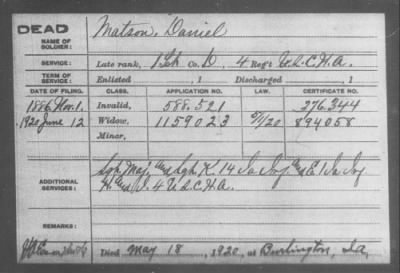 DEAD
NAME OF SOLDIER: Matson, Daniel
SERVICE: Late rank, 1 Lt Co. D, 4 Reg't U.S.C.H.A.
TERM OF SERVICE: Enlisted , 1 Discharged , 1
DATE OF FILING. CLASS. APPLICATION NO. LAW. CERTIFICATE NO.
1886 Nov. 1. Invalid, 588.521 376.344
1920 June 12 Widow, 1159023 894058
Minor,
ADDITIONAL SERVICES: K. 14 Ia Inf. E 1 Ia Inf
4 U.S.C.H.A.
REMARKS:
Died May 18, 1920, at Burlington, Ia,